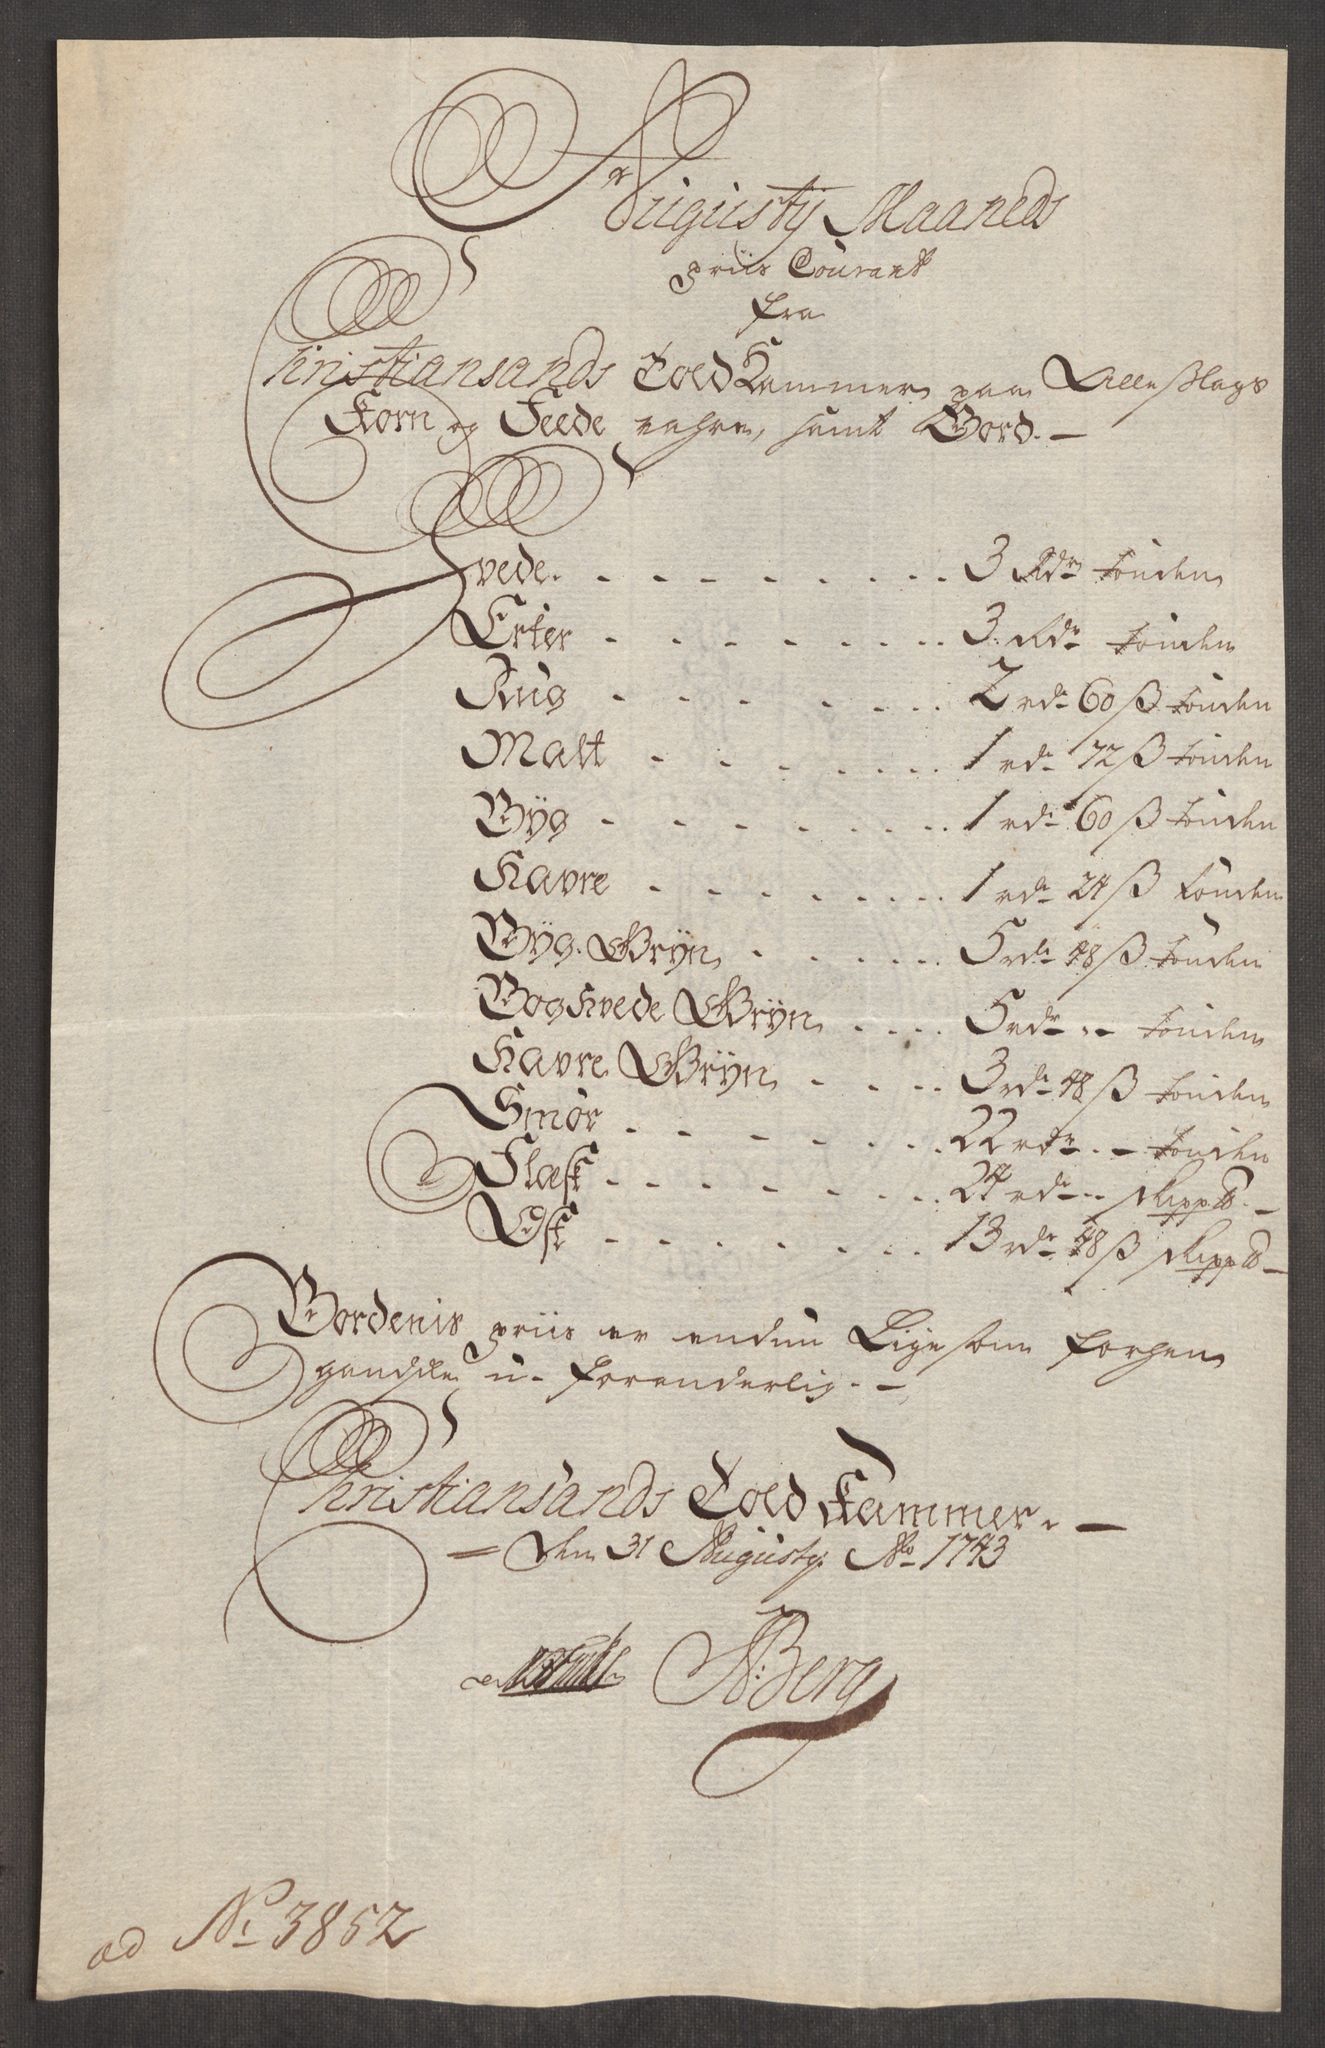 Augustÿ Maaneds
priis Courant
fra
Christiansands Told Kammer paa Alle Slags
Korn og Feede vahre, samt Bord.
Hvede. 3 Rdr tønden
Erter 3. Rdr tønden
Rug 2 rdr 60 ß tønden
Malt 1 rdr 72 ß tønden
Bÿg 1 rdr 60 ß tønden
Havre 1 rdr 24 ß tønden
Bÿg. Grÿn 5 rdr 48 ß tønden
Boghvede Grÿn 5 rdr tønden
Havre Grÿn 3 rdr 48 ß tønden
Smør 22 rdr tønden
Flæsk 24 rdr Skipp℔
Ost 13 rdr 48 ß Skipp℔
Bordenis priis er endnu Ligesom forhen
u-foranderlig.
Christiansands Told Kammer
Den 31 Augustÿ Ao 1743
A: Berg
ad No 3852